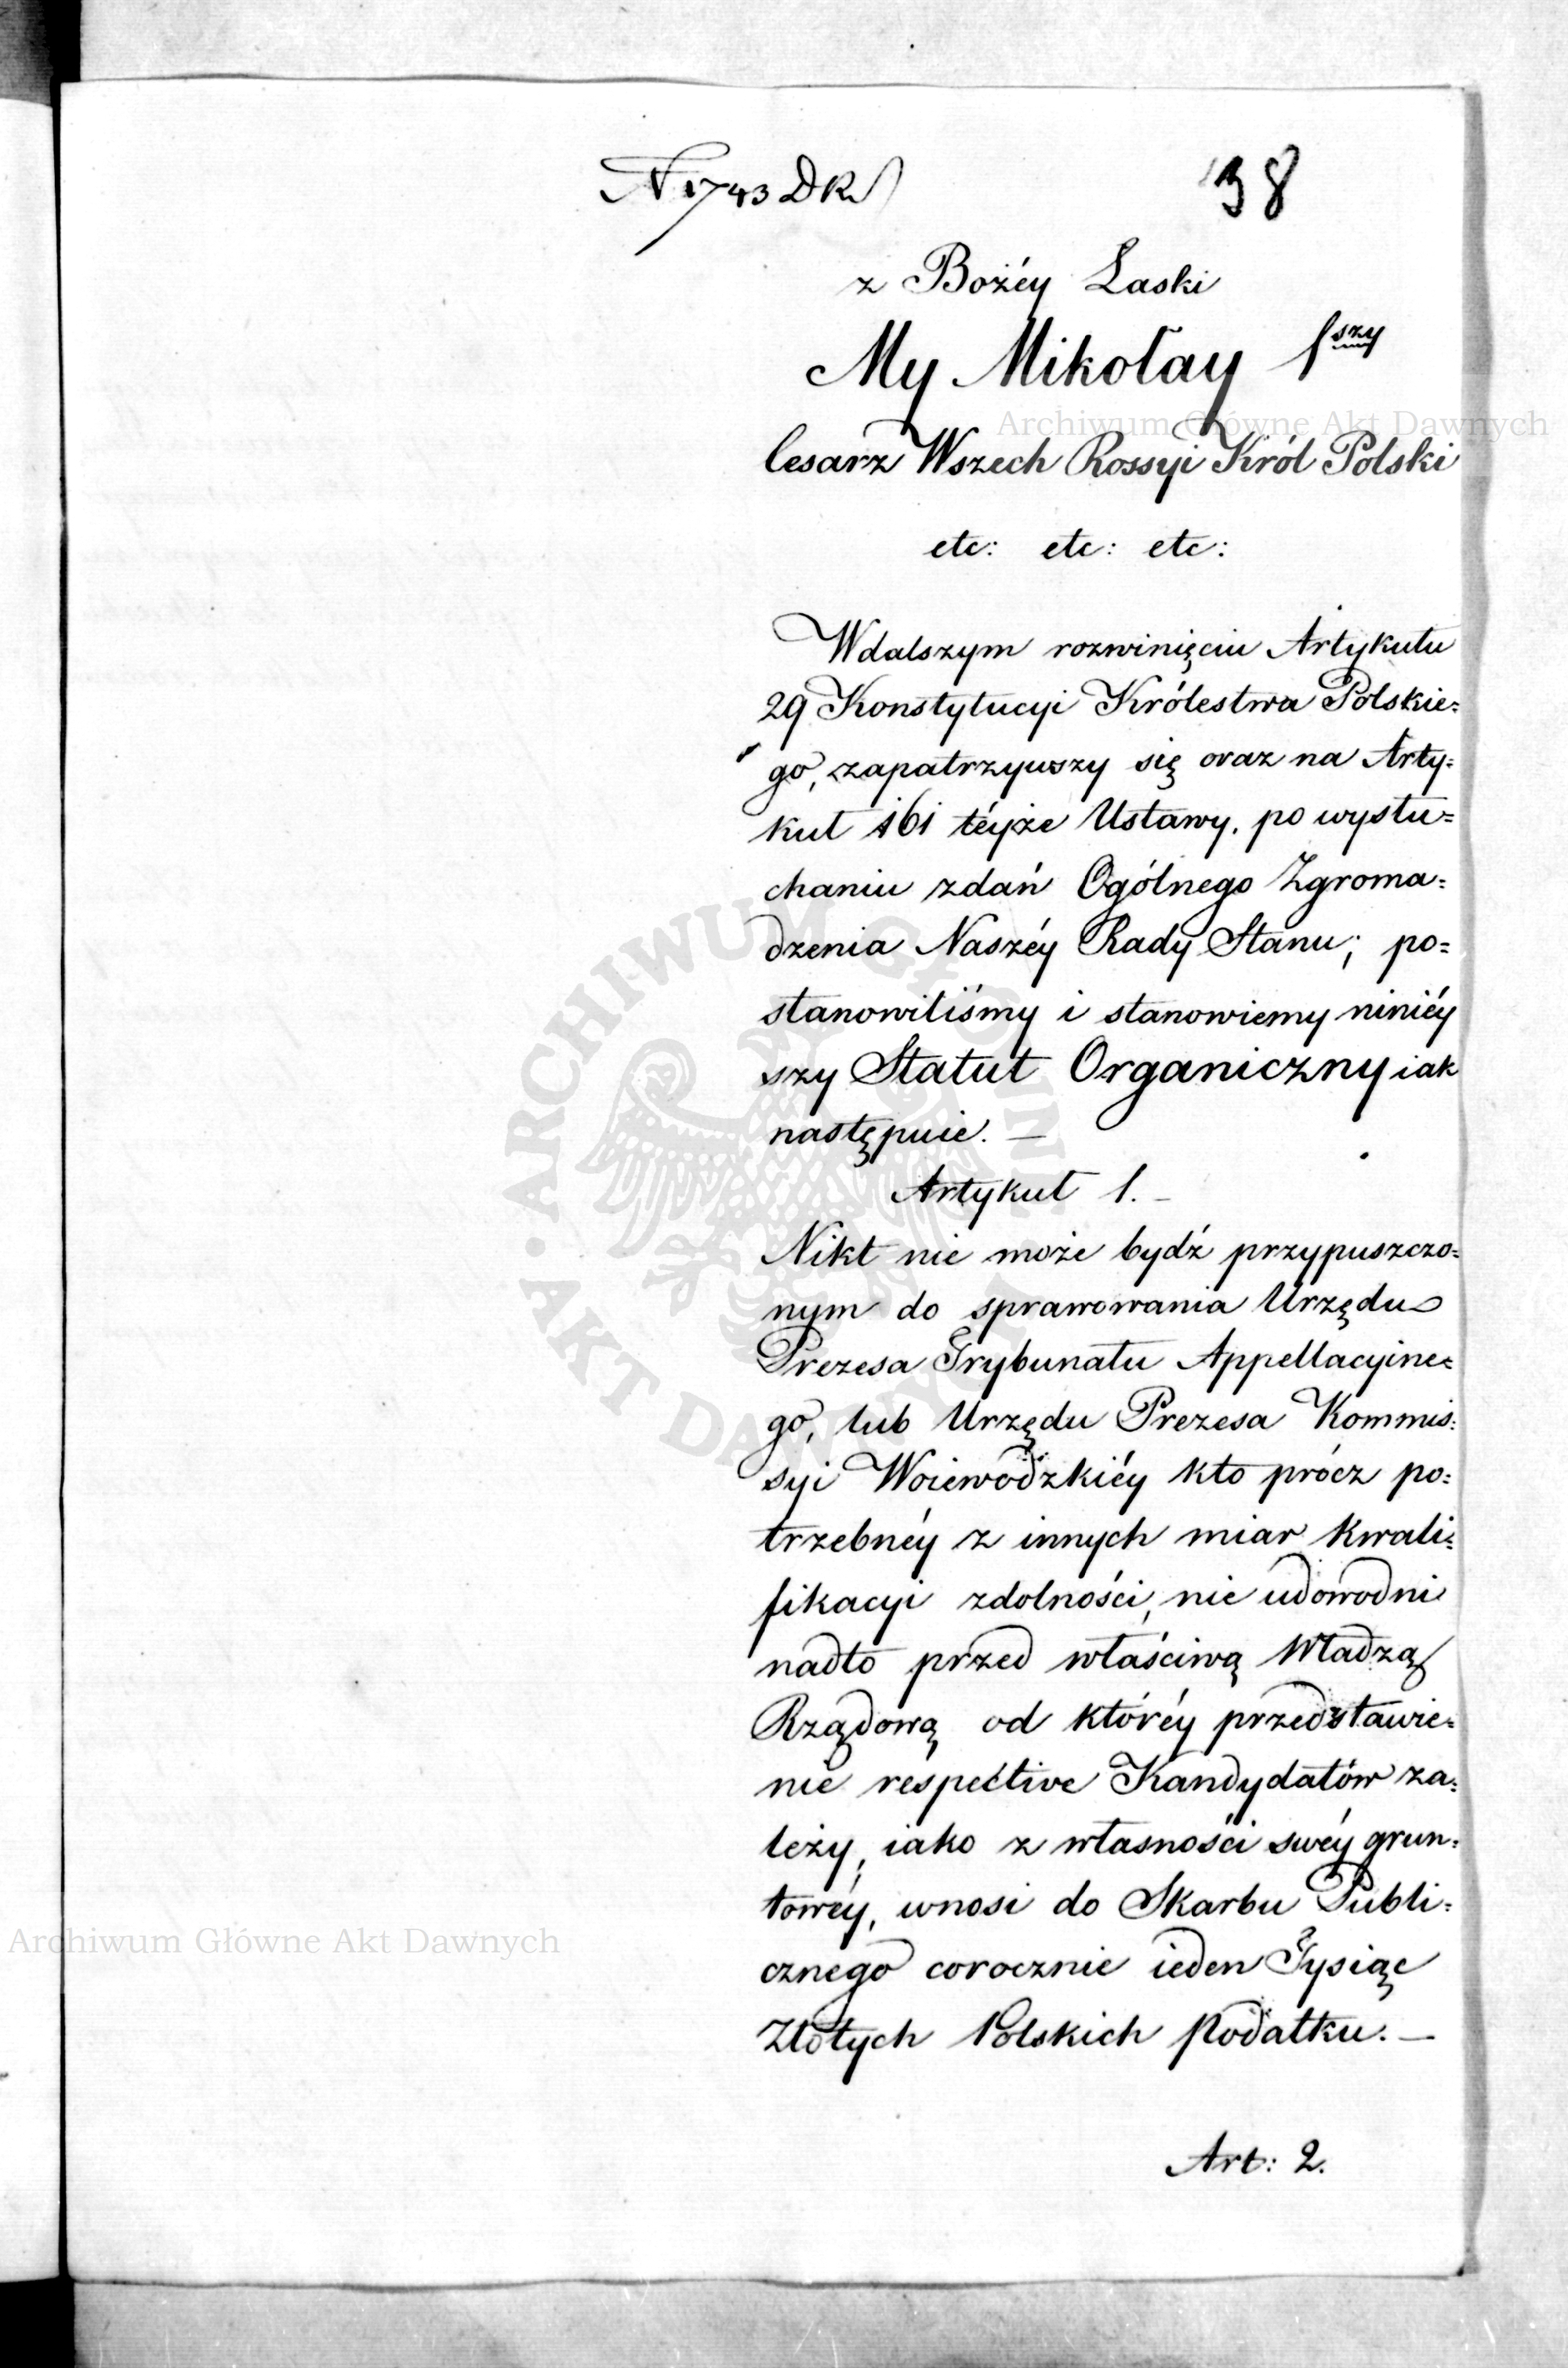 N 1743 DR
138
z Bożéy Łaski
My Mikołay Iszy
Cesarz Wszech Rossyi Król Polski
etc: etc: etc:
W dalszym rozwinięciu Artykułu
29 Konstytucyi Królestwa Polskie=
go, zapatrzywszy się oraz na Arty=
kuł 161 téyże Ustawy, po wysłu=
chaniu zdań Ogólnego Zgroma=
dzenia Naszéy Rady Stanu; po=
stanowiliśmy i stanowiemy niniéy
szy Statut Organiczny iak
następuie. —
Artykuł 1. –
Nikt nie może bydź przypuszczo=
nym do sprawowania Urzędu
Prezesa Trybunału Appellacyine=
go, lub Urzędu Prezesa Kommis=
syi Woiewodzkiéy kto prócz po=
trzebnéy z innych miar kwali=
fikacyi zdolności, nie udowodni
nadto przed właściwą Władzą
Rządową od któréy przedstawie=
nie respective Kandydatów za=
leży, iako z własności swéy grun=
towéy, wnosi do Skarbu Publi=
cznego corocznie ieden Tysiąc
Złotych Polskich Podatku. —
Art: 2.
Archiwum Główne Akt Dawnych
Archiwum Główne Akt Dawnych
ARCHIWUM GŁÓWNE · AKT DAWNYCH ·